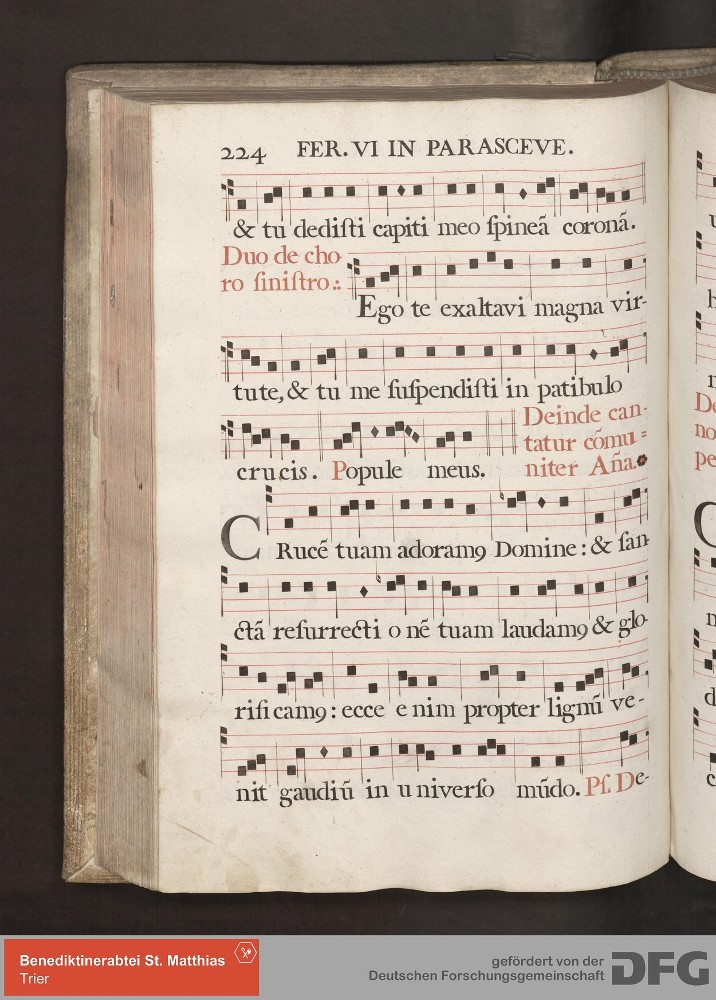 224 FER. VI IN PARASCEVE.
& tu dediſti capiti meo ſpineã coronã.
Duo de cho-
ro ſiniſtro.:
Ego te exaltavi magna vir-
tute, & tu me ſuſpendiſti in patibulo
crucis. Popule meus.
Deinde can-
tatur cõmu=
niter Aña.
CRucẽ tuam adoramꝰ Domine: & ſan-
ctã reſurrecti o nẽ tuam laudamꝰ & glo-
rificamꝰ: ecce e nim propter lignũ ve-
nit gaudiũ in u niverſo mũdo. Pſ. De-
u
h
n
De
no
pe
C
n
d
c
Benediktinerabtei St. Matthias
Trier
gefördert von der
Deutschen Forschungsgemeinschaft
DFG